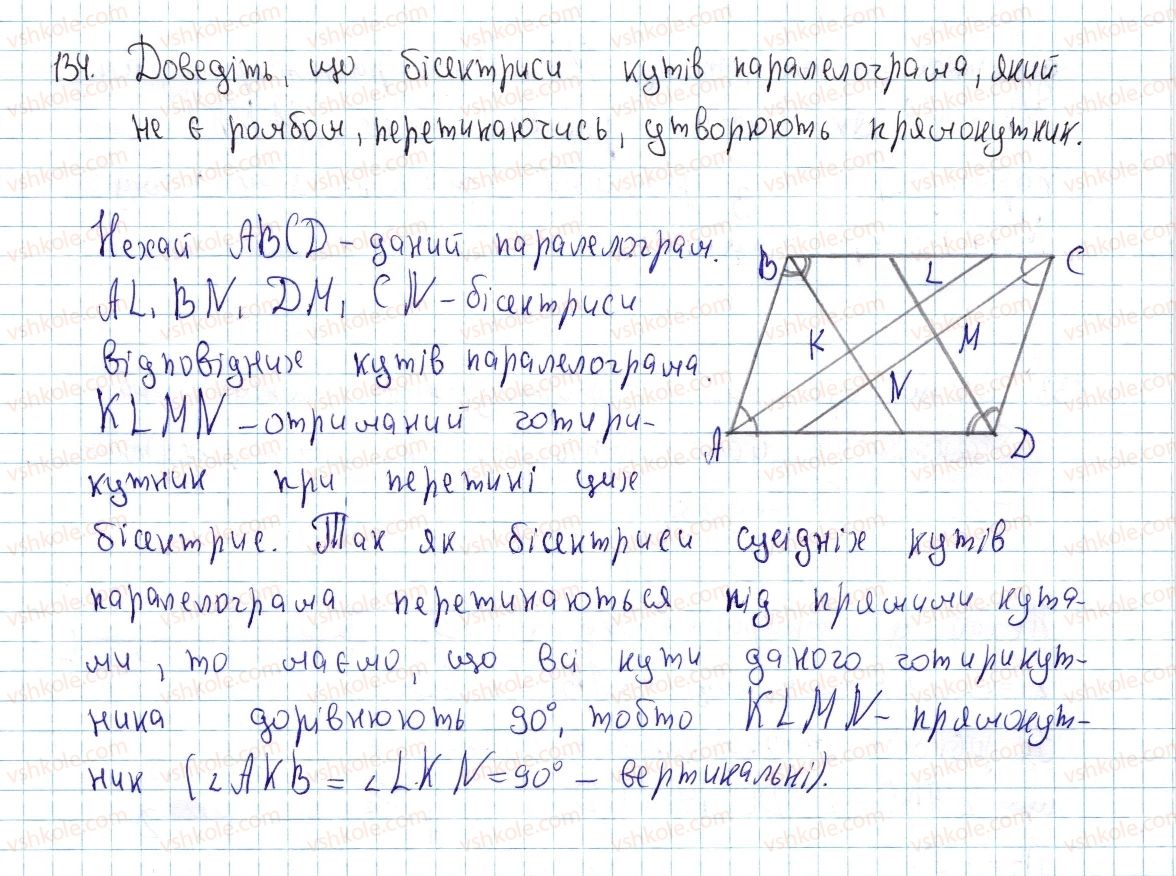 134. Доведіть, що бісектриси кутів паралелограма, який
не є ромбом, перетинаючись, утворюють прямокутник.
Нехай ABCD – даний паралелограм.
AL, BN, DM, CN – бісектриси
відповідних кутів паралелограма.
KLMN – отриманий чотири-
кутник при перетині цих
бісектрис. Так як бісектриси сусідніх кутів
паралелограма перетинаються під прямими кута-
ми, то маємо, що всі кути даного чотирикут-
ника дорівнюють 90°, тобто KLMN – прямокут-
ник (∠AKB = ∠LKN = 90° – вертикальні).
B L C
K M
N
A D
vshkole.com